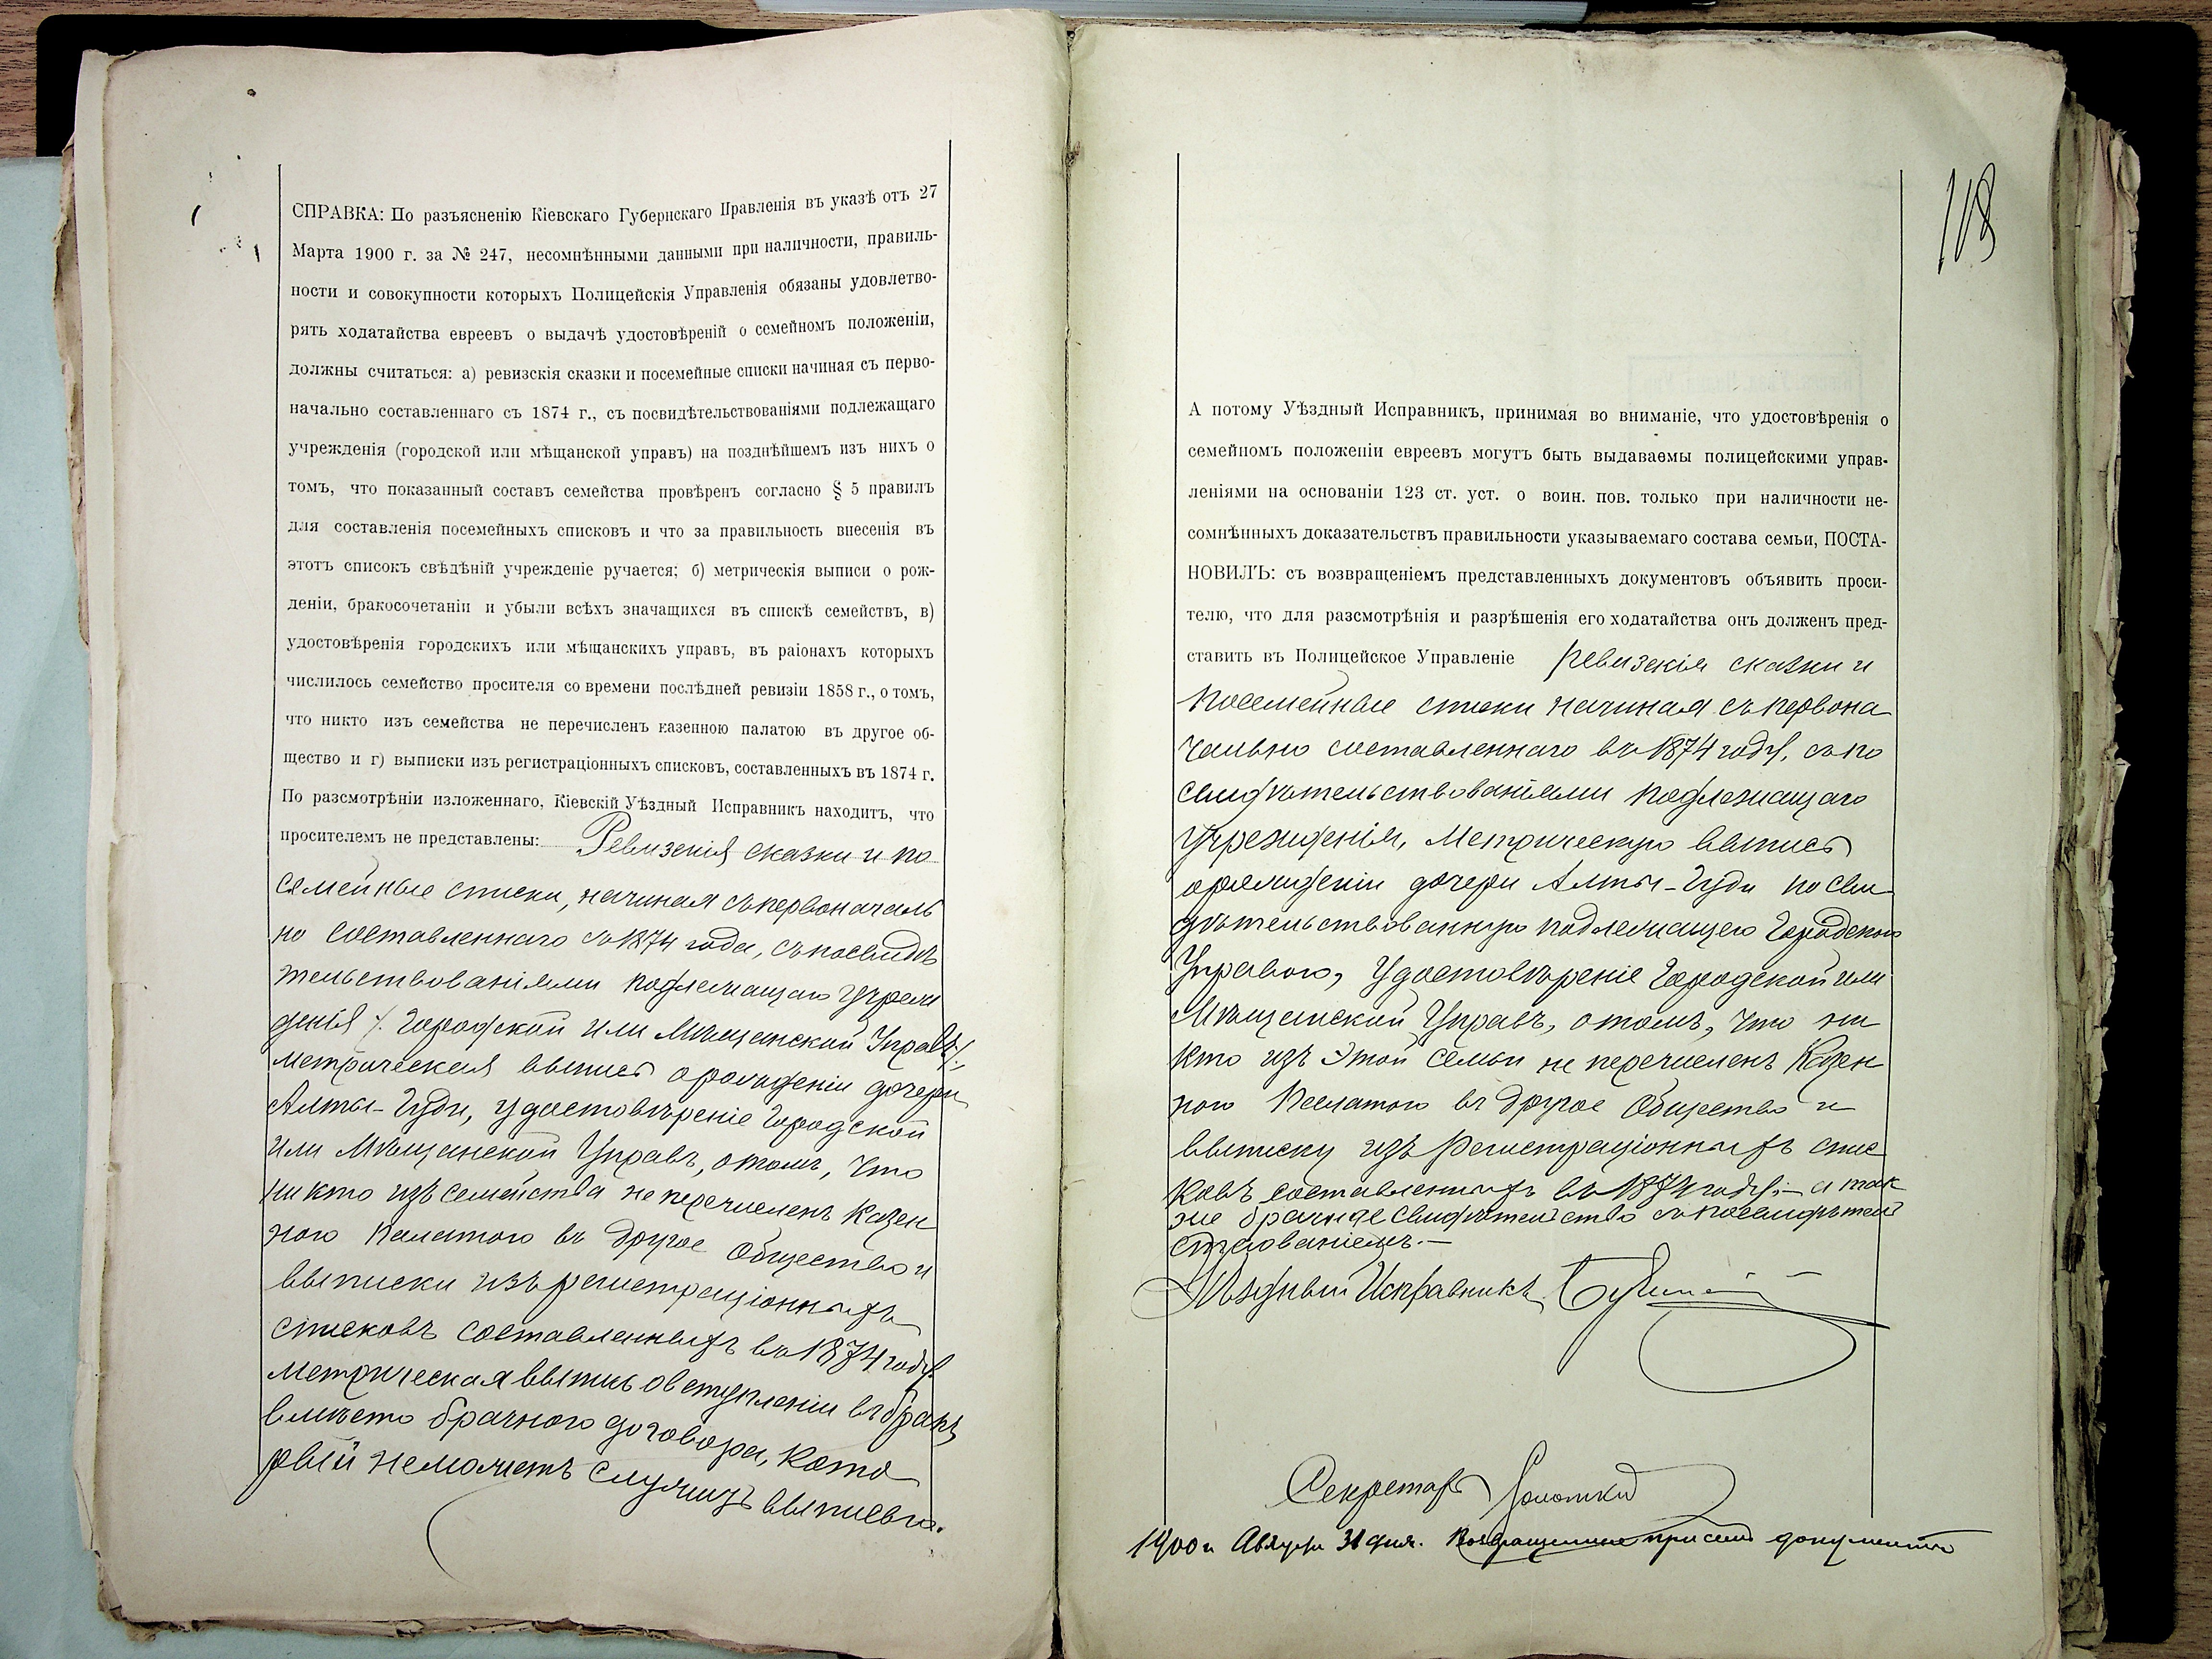 СПРАВКА: По разъясненію Кіевскаго Губернскаго Правленія въ указѣ отъ 27
Марта 1900 г. за № 247, несомнѣнными данными при наличности, правиль-
ности и совокупности которыхъ Полицейскія Управленія обязаны удовлетво-
рять ходатайства евреевъ о выдачѣ удостовѣреній о семейномъ положеніи,
должны считаться: а) ревизскія сказки и посемейные списки начиная съ перво-
начально составленнаго съ 1874 г., съ посвидѣтельствованіями подлежащаго
учрежденія (городской или мѣщанской управъ) на позднѣйшемъ изъ нихъ о
томъ, что показанный составъ семейства провѣренъ согласно § 5 правилъ
для составленія посемейныхъ списковъ и что за правильность внесенія въ
этотъ списокъ свѣдѣній учрежденіе ручается; б) метрическія выписи о рож-
деніи, бракосочетаніи и убыли всѣхъ значащихся въ спискѣ семействъ, в)
удостовѣренія городскихъ или мѣщанскихъ управъ, въ раіонахъ которыхъ
числилось семейство просителя со времени послѣдней ревизіи 1858 г., о томъ,
что никто изъ семейства не перечисленъ казенною палатою въ другое об-
щество и г) выписки изъ регистраціонныхъ списковъ, составленныхъ въ 1874 г.
По разсмотрѣніи изложеннаго, Кіевскій Уѣздный Исправникъ находитъ, что
просителемъ не представлены: Ревизскія сказки и по
семейные списки, начиная съ первоначаль
но составленнаго съ 1874 года, съ посвидѣ
тельствованіями подлежащаго учреж
денія /. Городской или Мѣщанской Управъ /.
метрическая выпись о рожденіи дочери
Алты-Гуди, удостовѣреніе Городской
или Мѣщанской Управъ, о томъ, что
ни кто изъ семейства не перечисленъ Казен
ною Палатою въ другое Общество и
выписки изъ регистраціонныхъ
списковъ составленныхъ въ 1874 году
метрическая выпись о вступленіи въ бракъ
вмѣсто брачного договора, кото
рый не можетъ служить выписью.
118
А потому Уѣздный Исправникъ, принимая во вниманіе, что удостовѣренія о
семейномъ положеніи евреевъ могутъ быть выдаваемы полицейскими управ-
леніями на основаніи 123 ст. уст. о воин. пов. только при наличности не-
сомнѣнныхъ доказательствъ правильности указываемаго состава семьи, ПОСТА-
НОВИЛЪ: съ возвращеніемъ представленныхъ документовъ объявить проси-
телю, что для разсмотрѣнія и разрѣшенія его ходатайства онъ долженъ пред-
ставить въ Полицейское Управленіе ревизскія сказки и
посемейные списки начиная съ первона
чально составленнаго въ 1874 году, съ по
свидѣтельствованіями подлежащаго
учрежденія, метрическую выпись
о рожденіи дочери Алты-Гуди посви
дѣтельствованную подлежащею Городскою
Управою, удостовѣреніе Городской или
Мѣщанской Управъ, о томъ, что ни
кто изъ этой семьи не перечисленъ Казен
ною Палатою въ другое Общество и
выписку изъ регистраціонныхъ спис
ковъ составленныхъ въ 1874 году; а так
же брачное свидѣтельство съ посвидѣтель
ствованіемъ.—
Уѣздный Исправникъ
Секретарь
1900 г. Августа 31 дня. Возвращенные при семъ документы